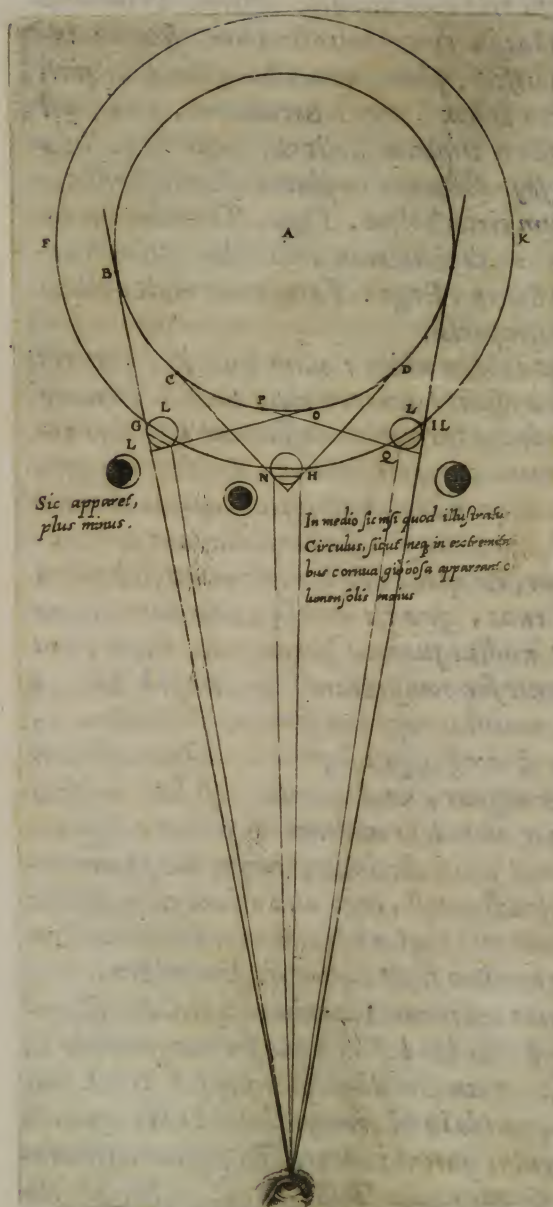 A
F
K
B
C
D
P
O
G
L
L
I L
L
N
H
Q
Sic apparet,
plus minus.
In medio sic nisi quod illustratu
Circulus, sicut neq in extremita
bus cornua gibbosa appareant
lumen solis maius